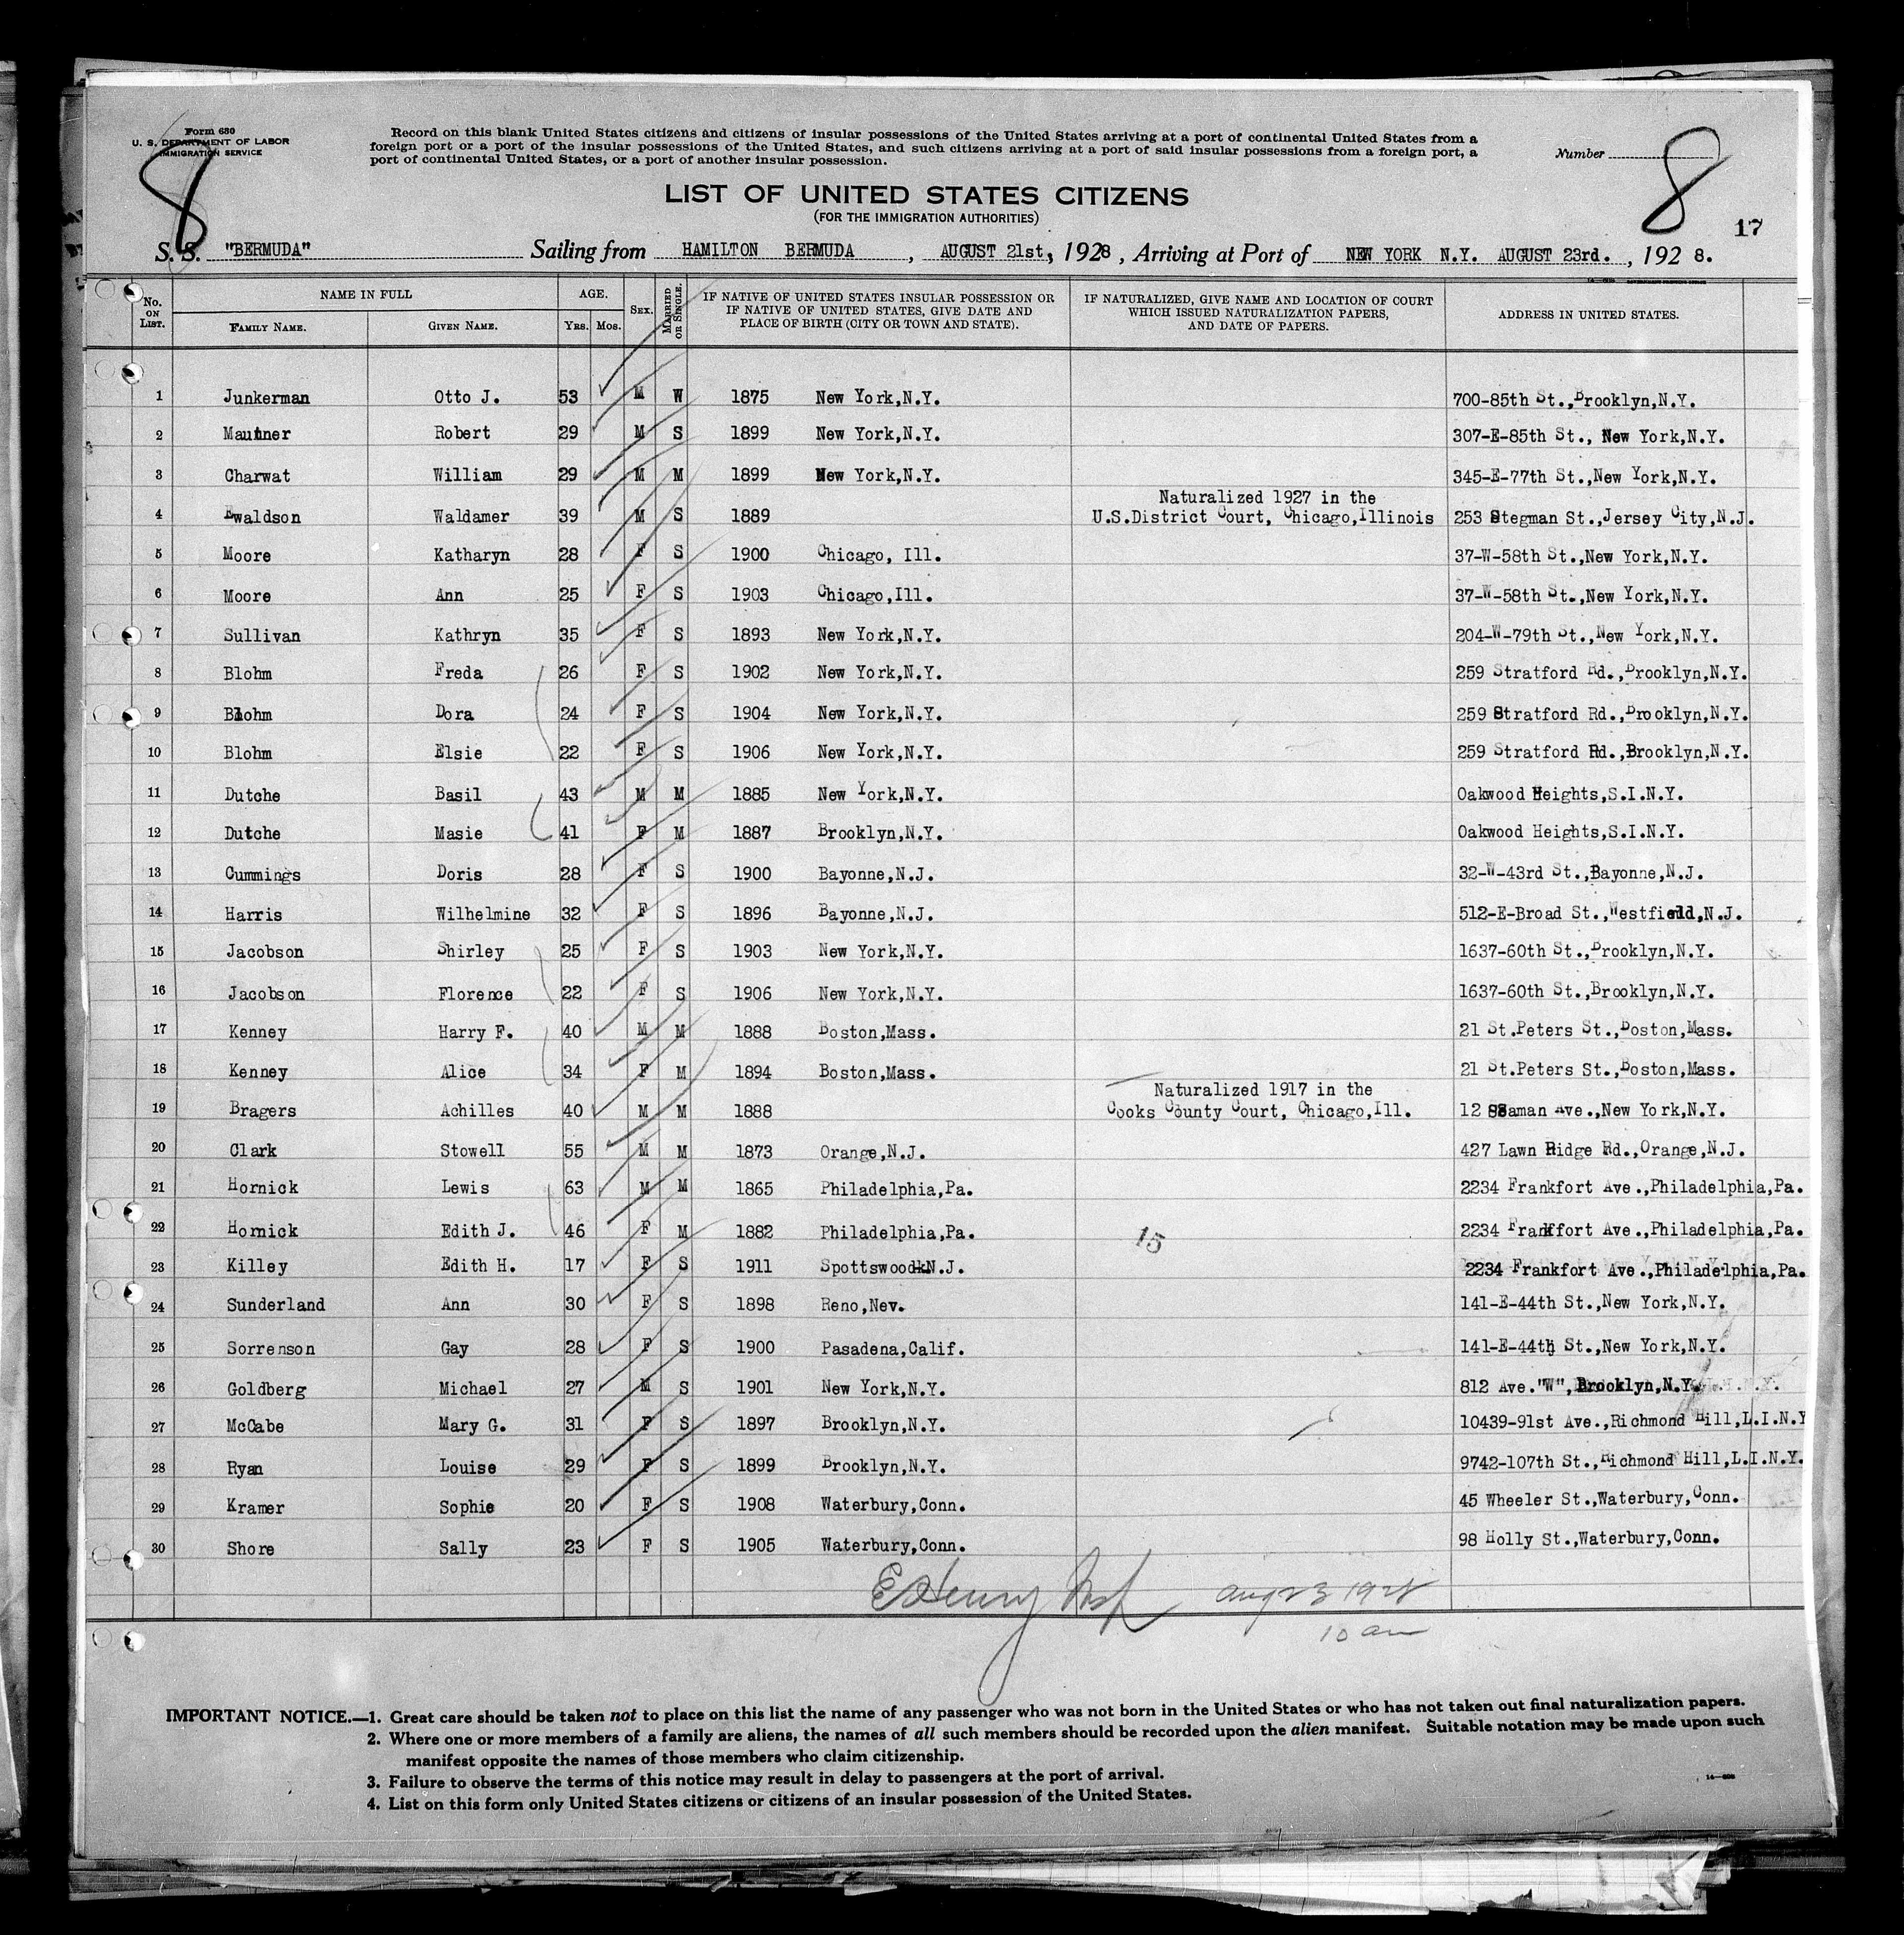 Form 630
U. S. DEPARTMENT OF LABOR
IMMIGRATION SERVICE
Record on this blank United States citizens and citizens of insular possessions of the United States arriving at a port of continental United States from a
foreign port or a port of the insular possessions of the United States, and such citizens arriving at a port of said insular possessions from a foreign port, a
port of continental United States, or a port of another insular possession.
Number
8
8
17
LIST OF UNITED STATES CITIZENS
(FOR THE IMMIGRATION AUTHORITIES)
S. S. "BERMUDA" Sailing from HAMILTON BERMUDA, AUGUST 21st, 1928, Arriving at Port of NEW YORK N.Y. AUGUST 23rd., 192 8.
No. ON LIST. NAME IN FULL FAMILY NAME. GIVEN NAME. AGE. YRS. MOS. SEX. MARRIED OR SINGLE. IF NATIVE OF UNITED STATES INSULAR POSSESSION OR IF NATIVE OF UNITED STATES, GIVE DATE AND PLACE OF BIRTH (CITY OR TOWN AND STATE). IF NATURALIZED, GIVE NAME AND LOCATION OF COURT WHICH ISSUED NATURALIZATION PAPERS, AND DATE OF PAPERS. ADDRESS IN UNITED STATES.
1 Junkerman Otto J. 53 M W 1875 New York,N.Y. 700-85th St.,Brooklyn,N.Y.
2 Mautner Robert 29 M S 1899 New York,N.Y. 307-E-85th St., New York,N.Y.
3 Charwat William 29 M M 1899 New York,N.Y. 345-E-77th St.,New York,N.Y.
Naturalized 1927 in the
4 Ewaldson Waldamer 39 M S 1889 U.S.District Court, Chicago,Illinois 253 Stegman St.,Jersey City,N.J.
5 Moore Katharyn 28 F S 1900 Chicago, Ill. 37-W-58th St.,New York,N.Y.
6 Moore Ann 25 F S 1903 Chicago,Ill. 37-W-58th St.,New York,N.Y.
7 Sullivan Kathryn 35 F S 1893 New York,N.Y. 204-W-79th St.,New York,N.Y.
8 Blohm Freda 26 F S 1902 New York,N.Y. 259 Stratford Rd.,Brooklyn,N.Y.
9 Blohm Dora 24 F S 1904 New York,N.Y. 259 Stratford Rd.,Brooklyn,N.Y.
10 Blohm Elsie 22 F S 1906 New York,N.Y. 259 Stratford Rd.,Brooklyn,N.Y.
11 Dutche Basil 43 M M 1885 New York,N.Y. Oakwood Heights,S.I.N.Y.
12 Dutche Masie 41 F M 1887 Brooklyn,N.Y. Oakwood Heights,S.I.N.Y.
13 Cummings Doris 28 F S 1900 Bayonne,N.J. 32-W-43rd St.,Bayonne,N.J.
14 Harris Wilhelmine 32 F S 1896 Bayonne,N.J. 512-E-Broad St.,Westfield,N.J.
15 Jacobson Shirley 25 F S 1903 New York,N.Y. 1637-60th St.,Brooklyn,N.Y.
16 Jacobson Florence 22 F S 1906 New York,N.Y. 1637-60th St.,Brooklyn,N.Y.
17 Kenney Harry F. 40 M M 1888 Boston,Mass. 21 St.Peters St.,Boston,Mass.
18 Kenney Alice 34 F M 1894 Boston,Mass. 21 St.Peters St.,Boston,Mass.
Naturalized 1917 in the
19 Bragers Achilles 40 M M 1888 Cooks County Court, Chicago,Ill. 12 Seaman Ave.,New York,N.Y.
20 Clark Stowell 55 M M 1873 Orange,N.J. 427 Lawn Ridge Rd.,Orange,N.J.
21 Hornick Lewis 63 M M 1865 Philadelphia,Pa. 2234 Frankfort Ave.,Philadelphia,Pa.
22 Hornick Edith J. 46 F M 1882 Philadelphia,Pa. 15 2234 Frankfort Ave.,Philadelphia,Pa.
23 Killey Edith H. 17 F S 1911 Spottswood N.J. 2234 Frankfort Ave.,Philadelphia,Pa.
24 Sunderland Ann 30 F S 1898 Reno,Nev. 141-E-44th St.,New York,N.Y.
25 Sorrenson Gay 28 F S 1900 Pasadena,Calif. 141-E-44th St.,New York,N.Y.
26 Goldberg Michael 27 M S 1901 New York,N.Y. 812 Ave."W",Brooklyn,N.Y.
27 McCabe Mary G. 31 F S 1897 Brooklyn,N.Y. 10439-91st Ave.,Richmond Hill,L.I.N.Y
28 Ryan Louise 29 F S 1899 Brooklyn,N.Y. 9742-107th St.,Richmond Hill,L.I.N.Y.
29 Kramer Sophie 20 F S 1908 Waterbury,Conn. 45 Wheeler St.,Waterbury,Conn.
30 Shore Sally 23 F S 1905 Waterbury,Conn. 98 Holly St.,Waterbury,Conn.
Henry Aug 23 1928
10 am
IMPORTANT NOTICE.—1. Great care should be taken not to place on this list the name of any passenger who was not born in the United States or who has not taken out final naturalization papers.
2. Where one or more members of a family are aliens, the names of all such members should be recorded upon the alien manifest. Suitable notation may be made upon such
manifest opposite the names of those members who claim citizenship.
3. Failure to observe the terms of this notice may result in delay to passengers at the port of arrival.
4. List on this form only United States citizens or citizens of an insular possession of the United States.